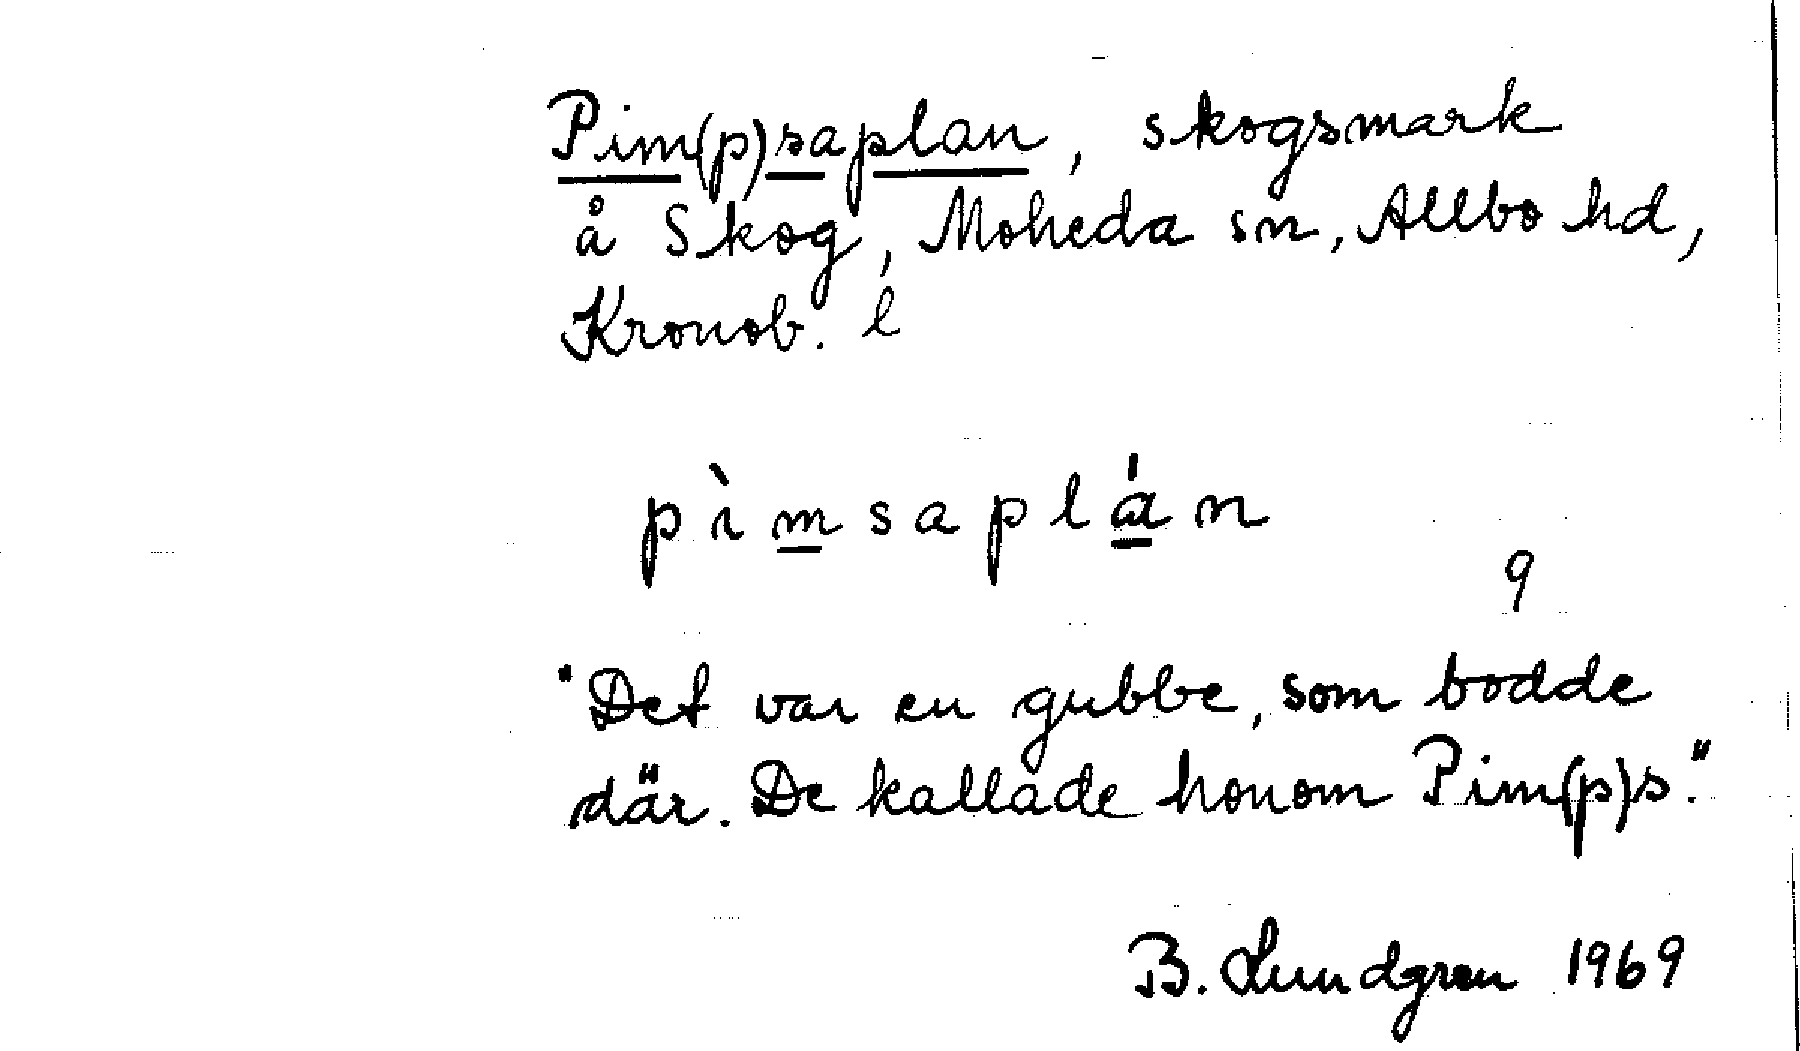 Pim(p)saplan, skogsmark
å Skog, Moheda sn, Allbo hd,
Kronob. l
pìmsaplán
9
"Det var en gubbe, som bodde
där. De kallade honom Pim(p)s."
B. Lundgren 1969